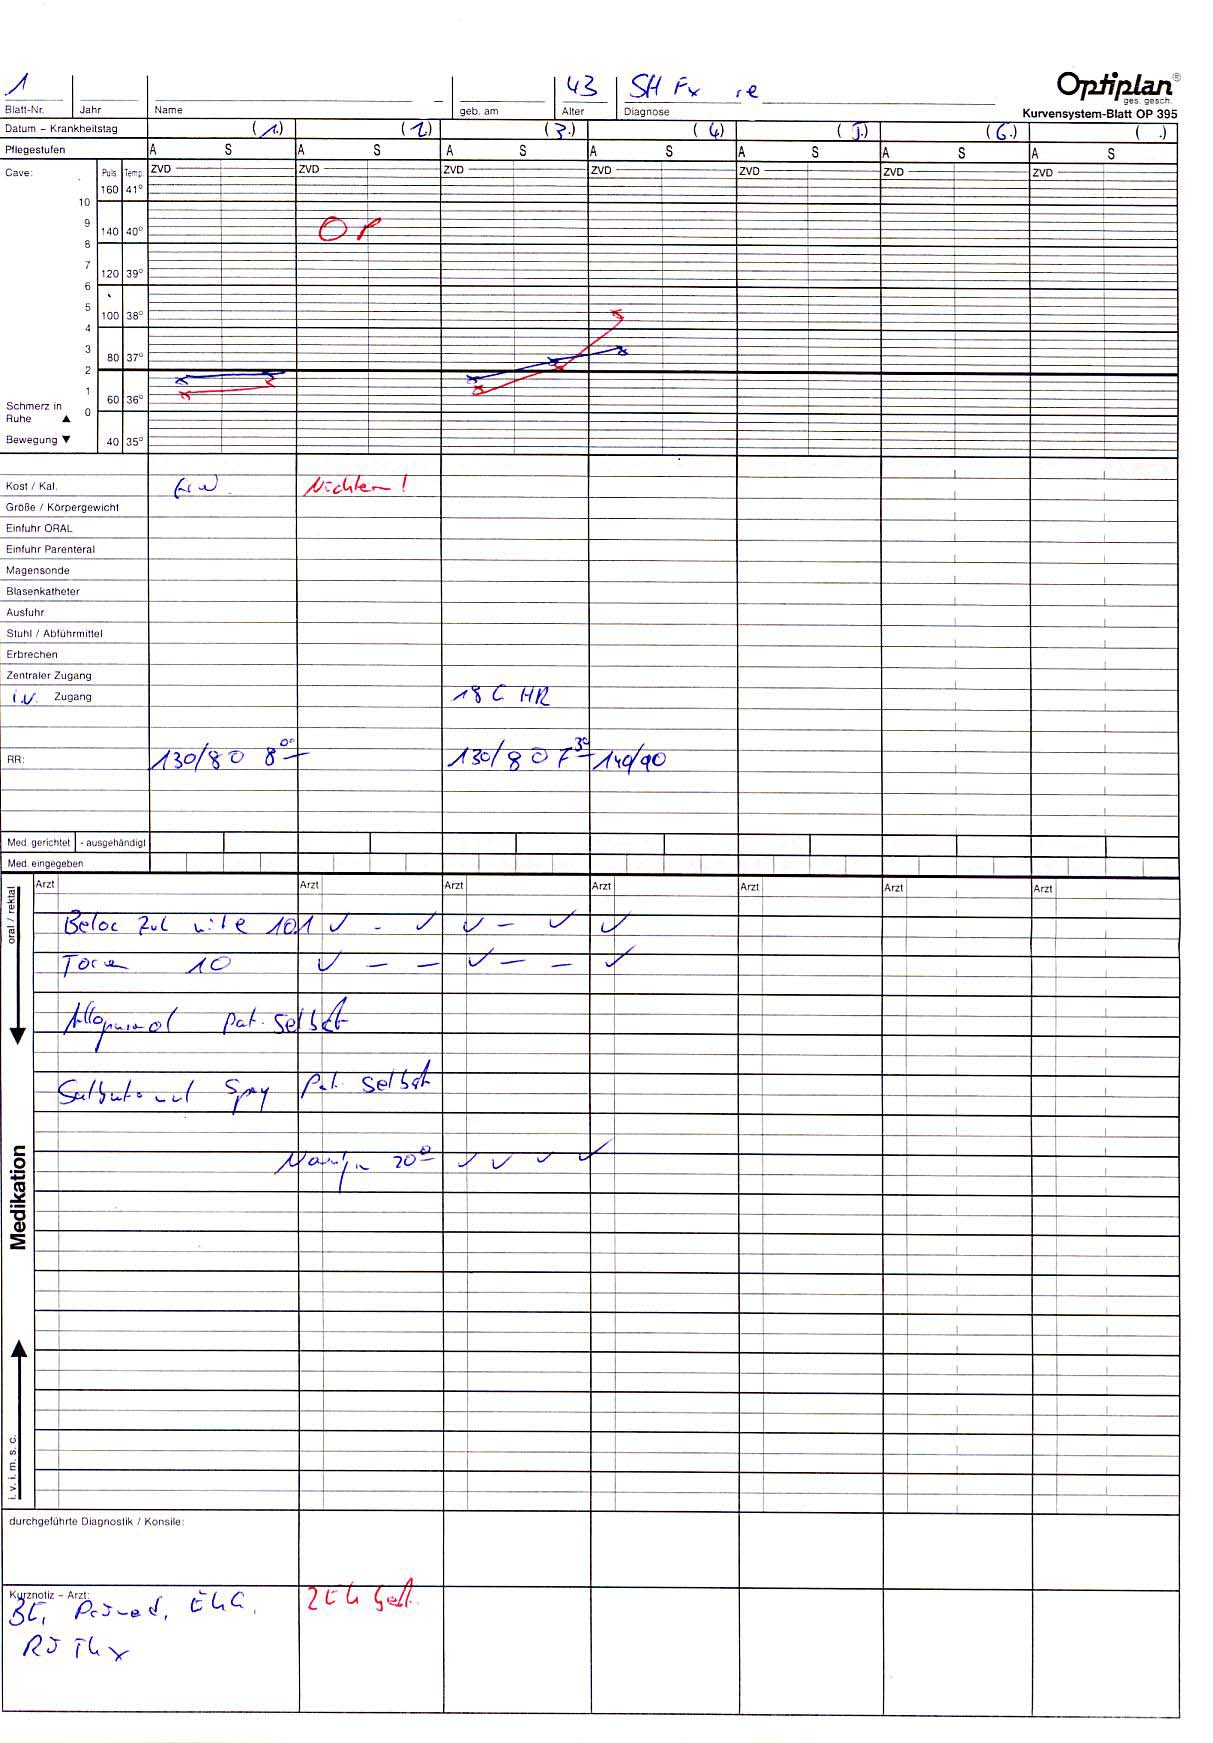 1 43 SH Fx re Optiplan®
ges. gesch.
Blatt-Nr. Jahr Name geb. am Alter Diagnose Kurvensystem-Blatt OP 395
Datum – Krankheitstag (1.) (2.) (3.) (4) (5.) (6.) ( .)
Pflegestufen A S A S A S A S A S A S A S
Cave: Puls Temp. ZVD ZVD ZVD ZVD ZVD ZVD ZVD
160 41°
10
9 140 40° OP
8
7 120 39°
6
5 100 38°
4
3 80 37°
2
1 60 36°
Schmerz in
Ruhe ▲ 0
Bewegung ▼ 40 35°
Kost / Kal. Nüchtern!
Größe / Körpergewicht
Einfuhr ORAL
Einfuhr Parenteral
Magensonde
Blasenkatheter
Ausfuhr
Stuhl / Abführmittel
Erbrechen
Zentraler Zugang
i.v. Zugang 18 G HR
RR: 130/80 8°° 130/80 7³⁰ 140/90
Med. gerichtet - ausgehändigt
Med. eingegeben
oral / rektal Arzt Arzt Arzt Arzt Arzt Arzt Arzt
Beloc Zok mite 101 ✓ - ✓ ✓ – ✓ ✓
Torem 10 ✓ – – ✓ – – ✓
Allopurinol Pat. selbst
Salbutamol Spray Pat. selbst
20° ✓ ✓ ✓ ✓
Medikation
i. v. i. m. s. c.
durchgeführte Diagnostik / Konsile:
Kurznotiz – Arzt:
BE, EKG, 2 EK
RÖ Thx